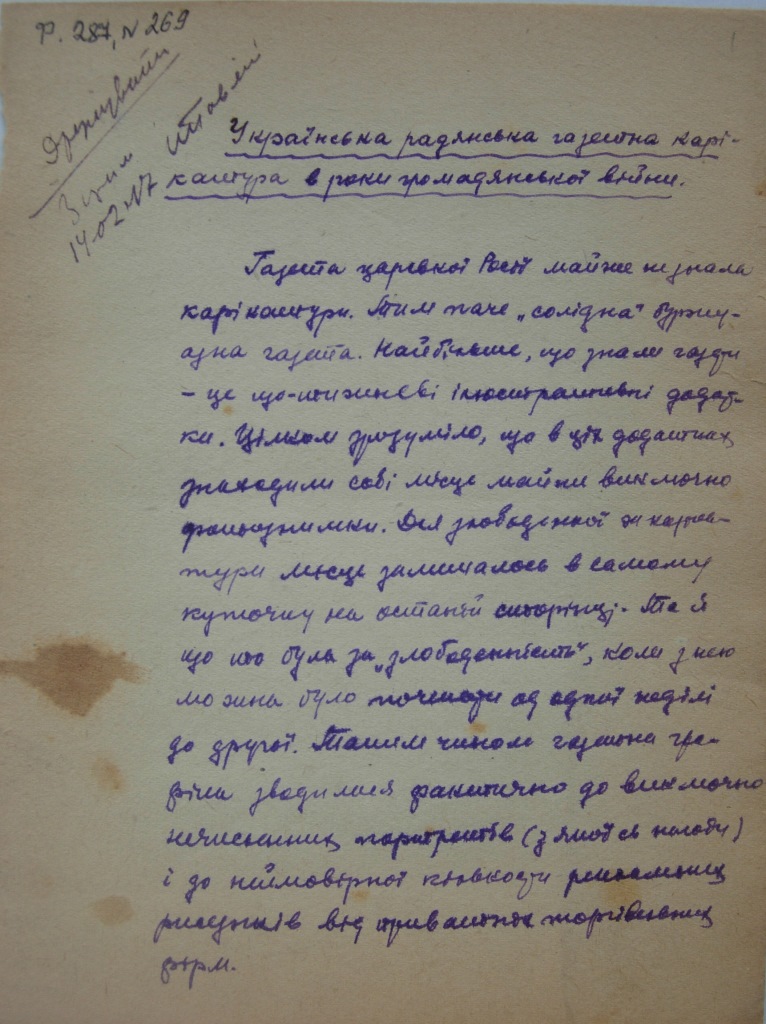 Ф. 287, N 269
Українська радянська газетна карі-
катура в роки громадянської війни.
Газета царської Росії майже не знала
карікатури. Тим паче „солідна" буржу-
азна газета. Найбільше, що знали газети
– це що-тижневі ілюстративні додат-
ки. Цілком зрозуміло, що в цих додатках
знаходили собі місце майже виключно
фотознимки. Для злободенної ж карика-
тури місце залишалось в самому
куточку на останій сторінці. Та й
що то була за „злободенність", коли з нею
можна було почекати од одної неділі
до другої. Таким чином газетна гра-
фіка зводилася фактично до виключно
нечисленних портретів (з якоїсь нагоди)
і до неймовірної кількости рекламних
рисунків від приватних торгівельних
фірм.